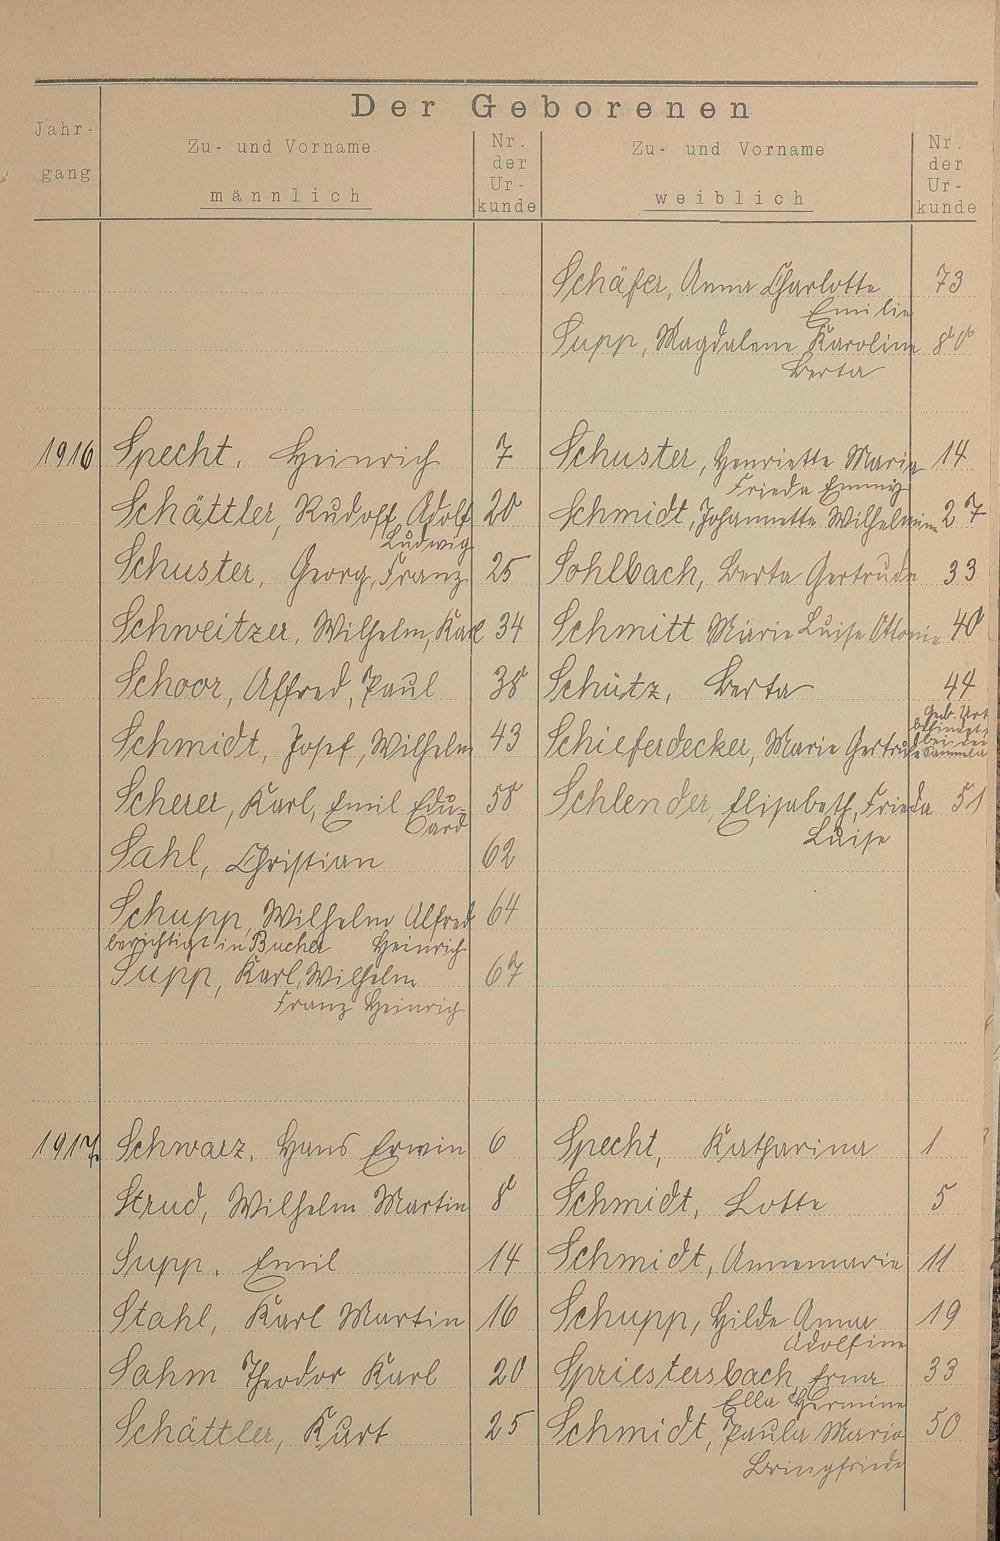 Der Geborenen
Jahr-
gang
Zu- und Vorname
männlich
Nr.
der
Ur-
kunde
Zu- und Vorname
weiblich
Nr.
der
Ur-
kunde
Schäfer, Anna Charlotte 73
Emilie
Supp, Magdalene Karoline 80
Berta
1916 Specht, Heinrich 7 Schuster, Henriette Marie 14
Frieda Emmy
Schättler, Rudolf Adolf 20 Schmidt, Johannette Wilhelmine 27
Ludwig
Schuster, Georg, Franz 25 Sohlbach, Berta Gertrude 33
Schweitzer, Wilhelm, Karl 34 Schmitt Marie Luise Ottonie 40
Schoor, Alfred, Paul 38 Schütz, Berta 44
Geb. Urk
befindet
bei der
Schmidt, Josef, Wilhelm 43 Schieferdecker, Marie Gertrude
Scherer, Karl, Emil Edu- 58 Schlender, Elisabeth, Frieda 51
ard
Luise
Sahl, Christian 62
Schupp, Wilhelm Alfred 64
berichtigt in Bucher Heinrich
Supp, Karl, Wilhelm 67
Franz Heinrich
1917. Schwarz, Hans Erwin 6 Specht, Katharina 1
Strud, Wilhelm Martin 8 Schmidt, Lotte 5
Supp, Emil 14 Schmidt, Annemarie 11
Stahl, Karl Martin 16 Schupp, Hilde Anna 19
Adolfine
Sahm Theodor Karl 20 Spriestersbach Erna 33
Ella Hermine
Schättler, Kurt 25 Schmidt, Paula Marie 50
Bringfriede